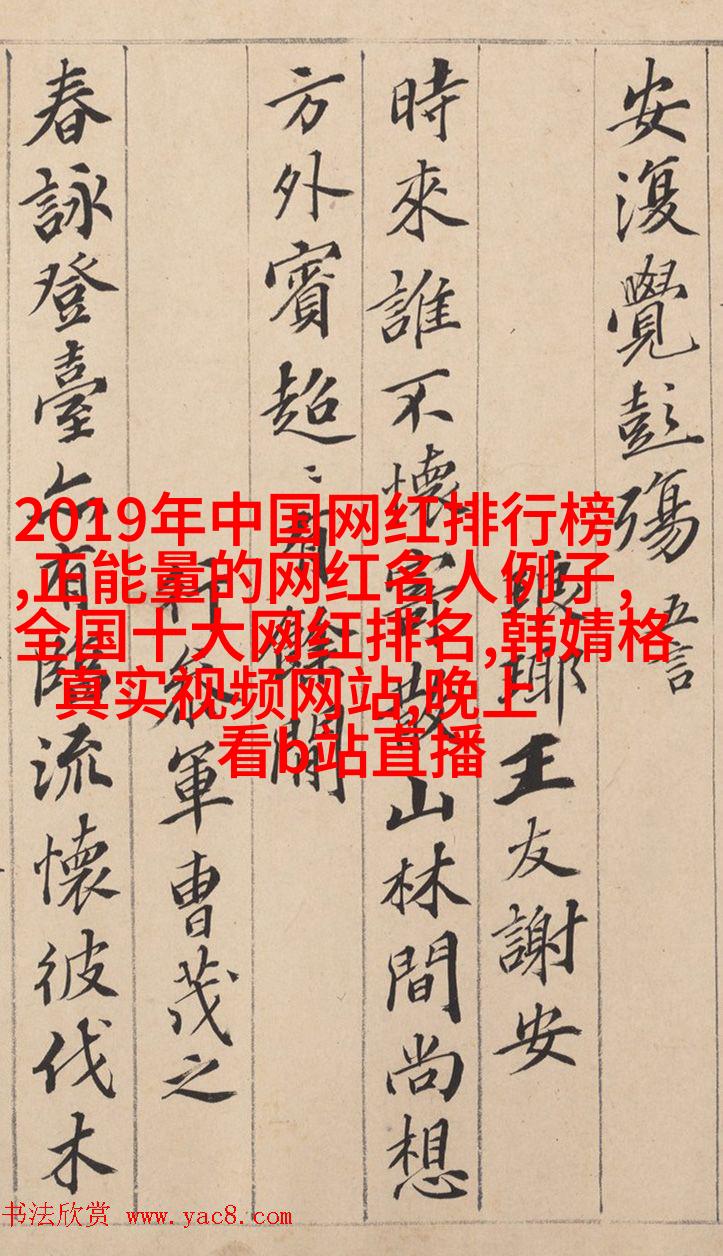 安復覺彭殤 五言
琅瑘王友謝安
時來誰不懷寄散山林間尚想
方外賓超〻有餘閒
行參軍曹茂之
春詠登臺亦有臨流懷彼伐木
2019年中国网红排行榜
,正能量的网红名人例子,
全国十大网红排名,韩婧格
真实视频网站,晚上
看b站直播
书法欣赏 www.yac8.com